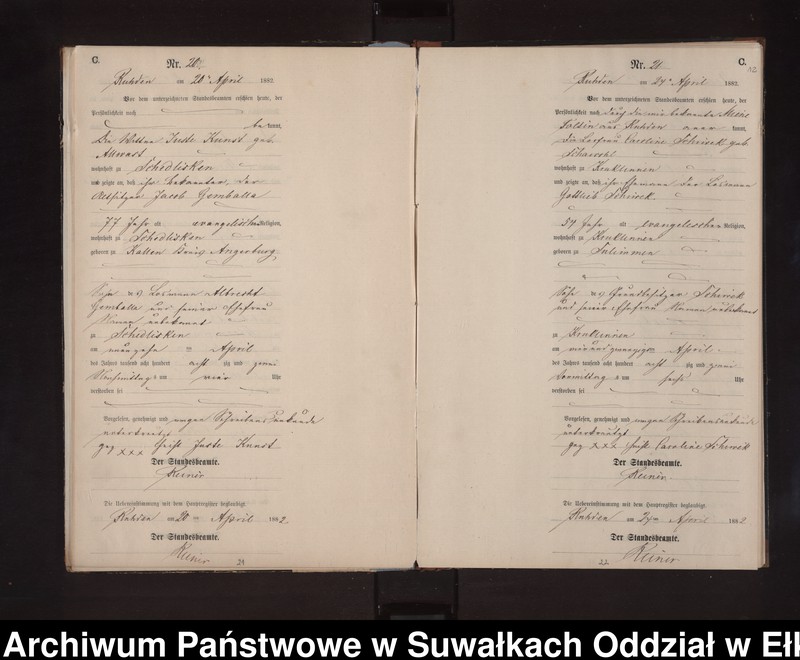 C.
Nr. 20.
Ruhden am 20ten April 1882.
Vor dem unterzeichneten Standesbeamten erschien heute, der
Persönlichkeit nach
be kannt,
Die Wittwe Juste Kunst geb.
wohnhaft zu Schedlisken
und zeigte an, daß ihr Bekannter, der
Altsitzer Jacob Gemballa
77 Jahr alt evangelischer Religion,
wohnhaft zu Schedlisken
geboren zu Kallen Kreis Angerburg,
Sohn des Losmann Albrecht
Gemballa und seiner Ehefrau
Namen unbekannt
zu Schedlisken
am neunzehn ten April
des Jahres tausend acht hundert acht zig und zwei
Nachmittags um vier Uhr
verstorben sei
Vorgelesen, genehmigt und wegen Schreibensunkunde
unterkreuzt
gez xxx heißt Juste Kunst
Der Standesbeamte.
Die Uebereinstimmung mit dem Hauptregister beglaubigt.
Ruhden am 20 ten April 1882.
Der Standesbeamte.
21
C.
Nr. 21.
Ruhden am 24ten April 1882.
Vor dem unterzeichneten Standesbeamten erschien heute, der
Persönlichkeit nach durch den mir bekannten
aus Ruhden aner kannt,
die Losfrau Caroline geb.
wohnhaft zu Kruklinnen
und zeigte an, daß ihr Ehemann der Losmann
Gottlieb
57 Jahr alt evangelischer Religion,
wohnhaft zu Kruklinnen
geboren zu
Sohn des Grundbesitzer
und seiner Ehefrau Namen unbekannt
zu Kruklinnen
am vierundzwanzigten April
des Jahres tausend acht hundert acht zig und zwei
Vormittags um sechs Uhr
verstorben sei
Vorgelesen, genehmigt und wegen Schreibensunkunde
unterkreuzt
gez xxx heißt Caroline
Der Standesbeamte.
Die Uebereinstimmung mit dem Hauptregister beglaubigt.
Ruhden am 24ten April 1882.
Der Standesbeamte.
22
Archiwum Państwowe w Suwałkach Oddział w Ełk